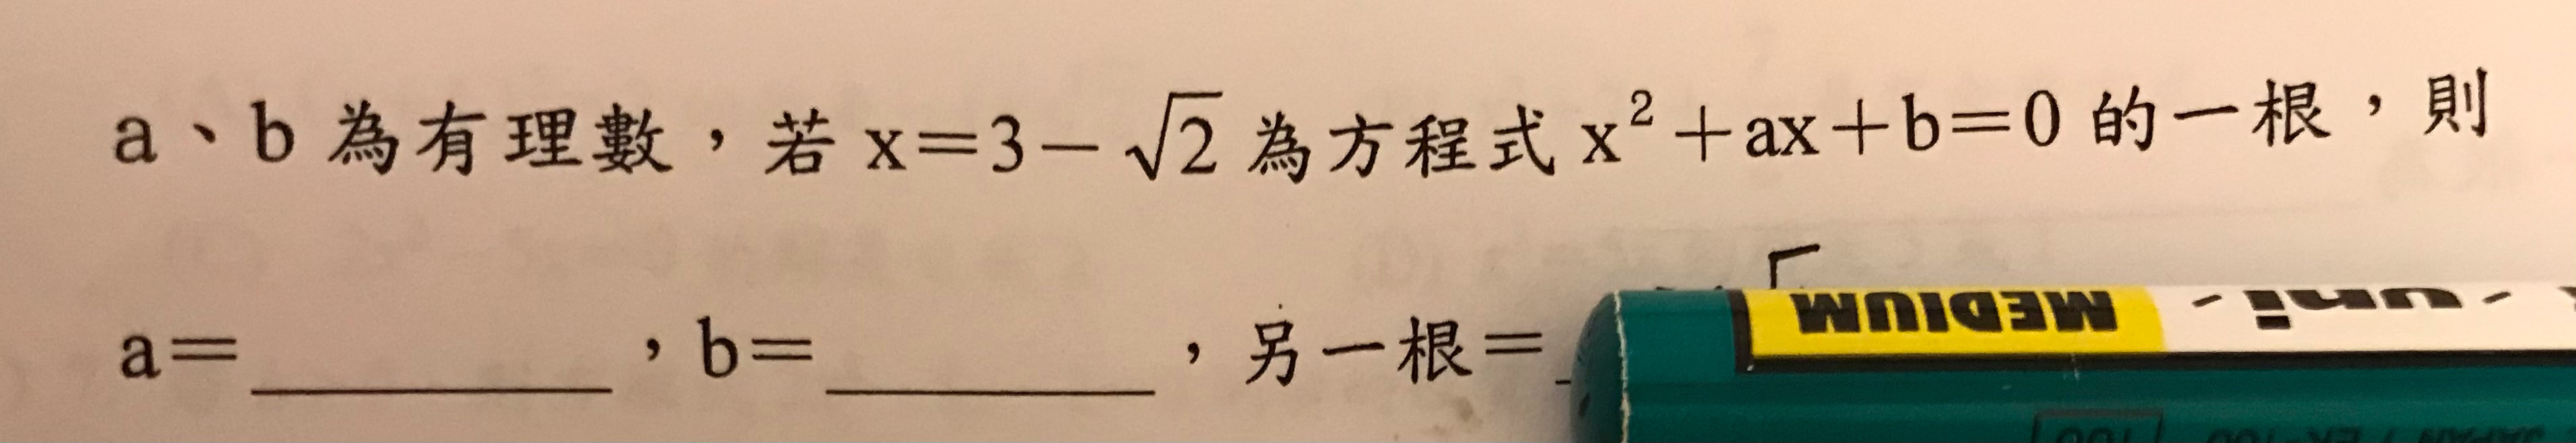 a、b 為有理數，若 x=3-√2 為方程式 x²+ax+b=0 的一根，則
a=________，b=________，另一根=_
MEDIUM uni